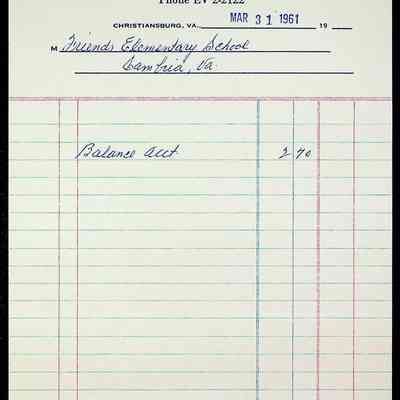 Phone EV 2-2122
CHRISTIANSBURG, VA. MAR 31 1961 19
M Friends Elementary School
Cambria, Va.
Balance acct 2 70